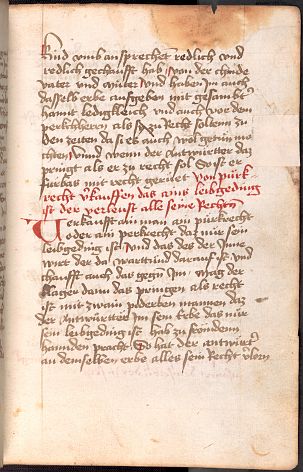 Und umb an sprechet redlich und
redlich gechaufft hab / von der chinde
vater und mueter und haben im auch
dasselb erbe aufgeben mit gesambter
hannt ledigkleich und auch vor dem
perkchherrn als zu Recht sollent zu
den zeiten da si es auch wol getün mo
chten Unnd wenn der Antwürtter daz
prinngt als er zu recht sol So ist er
fürbas mit recht gerüet von purk-
recht v'kauffen das ains leibgeding
ist der verleust alle seine Rechten
Verkaufft ain man ain purkrecht
oder ain perkrecht daz nur sein
leibgeding ist Und das des der Inne
wirt der da warttund darauf ist und
chaufft auch das gegen Im mag der
klager dann das prinngen als recht
ist mit zwain piderben mannen daz
der Antwürtter im sein Erbe das nur
sein leibgeding ist hab zu frömden
hannden pracht So hat der antwürtter
an demselben erbe alles sein Recht v'lorn